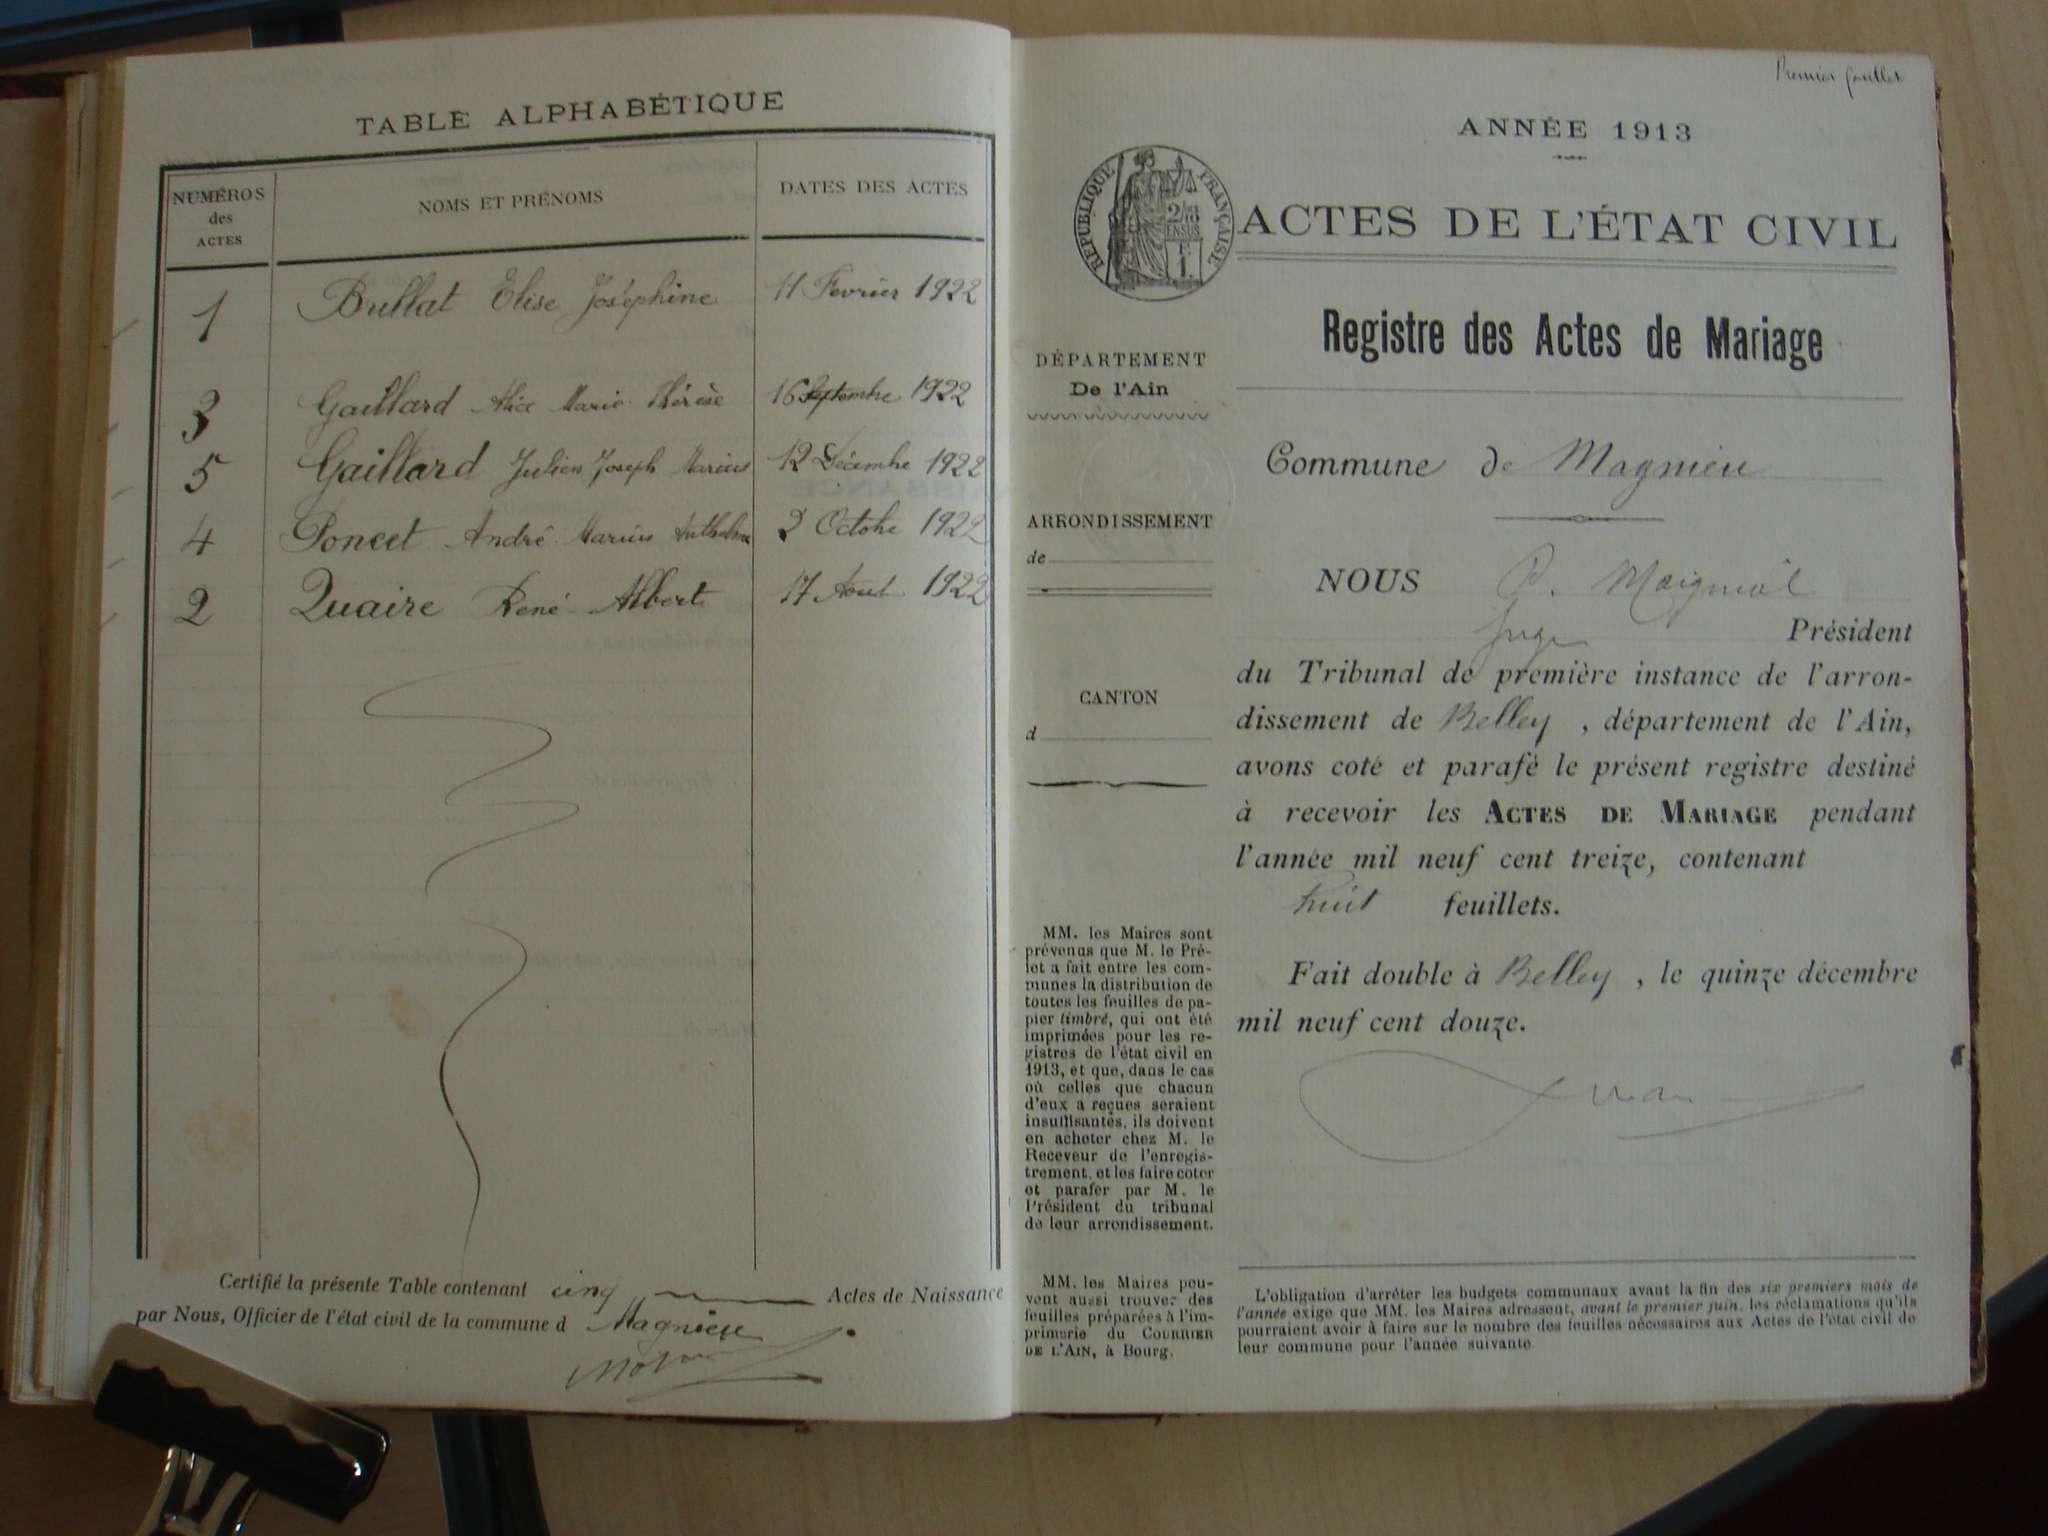 TABLE ALPHABÉTIQUE
NUMÉROS
des
ACTES
NOMS ET PRÉNOMS
DATES DES ACTES
1 Brullat Elise Joséphine 11 Fevrier 1922
3 Gaillard Alice Marie Thérèse 16 Septembre 1922
5 Gaillard Julien Joseph Marius 12 Décembre 1922
4 Poncet André Marius Anthelme 2 Octobre 1922
2 Quaire René Albert 17 Aout 1922
Certifié la présente Table contenant cinq Actes de Naissance
par Nous, Officier de l'état civil de la commune d Magnieu
Premier feuillet
ANNÉE 1913
RÉPUBLIQUE FRANÇAISE
2/10
EN SUS
1 F
ACTES DE L'ÉTAT CIVIL
Registre des Actes de Mariage
DÉPARTEMENT
De l'Ain
ARRONDISSEMENT
de
CANTON
d
MM. les Maires sont
prévenus que M. le Pré-
fet a fait entre les com-
munes la distribution de
toutes les feuilles de pa-
pier timbré, qui ont été
imprimées pour les re-
gistres de l'état civil en
1913, et que, dans le cas
où celles que chacun
d'eux a reçues seraient
insuffisantes, ils doivent
en acheter chez M. le
Receveur de l'enregis-
trement, et les faire coter
et parafer par M. le
Président du tribunal
de leur arrondissement.
MM. les Maires peu-
vent aussi trouver des
feuilles préparées à l'im-
primerie du COURRIER
DE L'AIN, à Bourg.
Commune de Magnieu
NOUS P. Maignial
Juge Président
du Tribunal de première instance de l'arron-
dissement de Belley, département de l'Ain,
avons coté et parafé le présent registre destiné
à recevoir les ACTES DE MARIAGE pendant
l'année mil neuf cent treize, contenant
huit feuillets.
Fait double à Belley, le quinze décembre
mil neuf cent douze.
L'obligation d'arrêter les budgets communaux avant la fin des six premiers mois de
l'année exige que MM. les Maires adressent, avant le premier juin, les réclamations qu'ils
pourraient avoir à faire sur le nombre des feuilles nécessaires aux Actes de l'état civil de
leur commune pour l'année suivante.